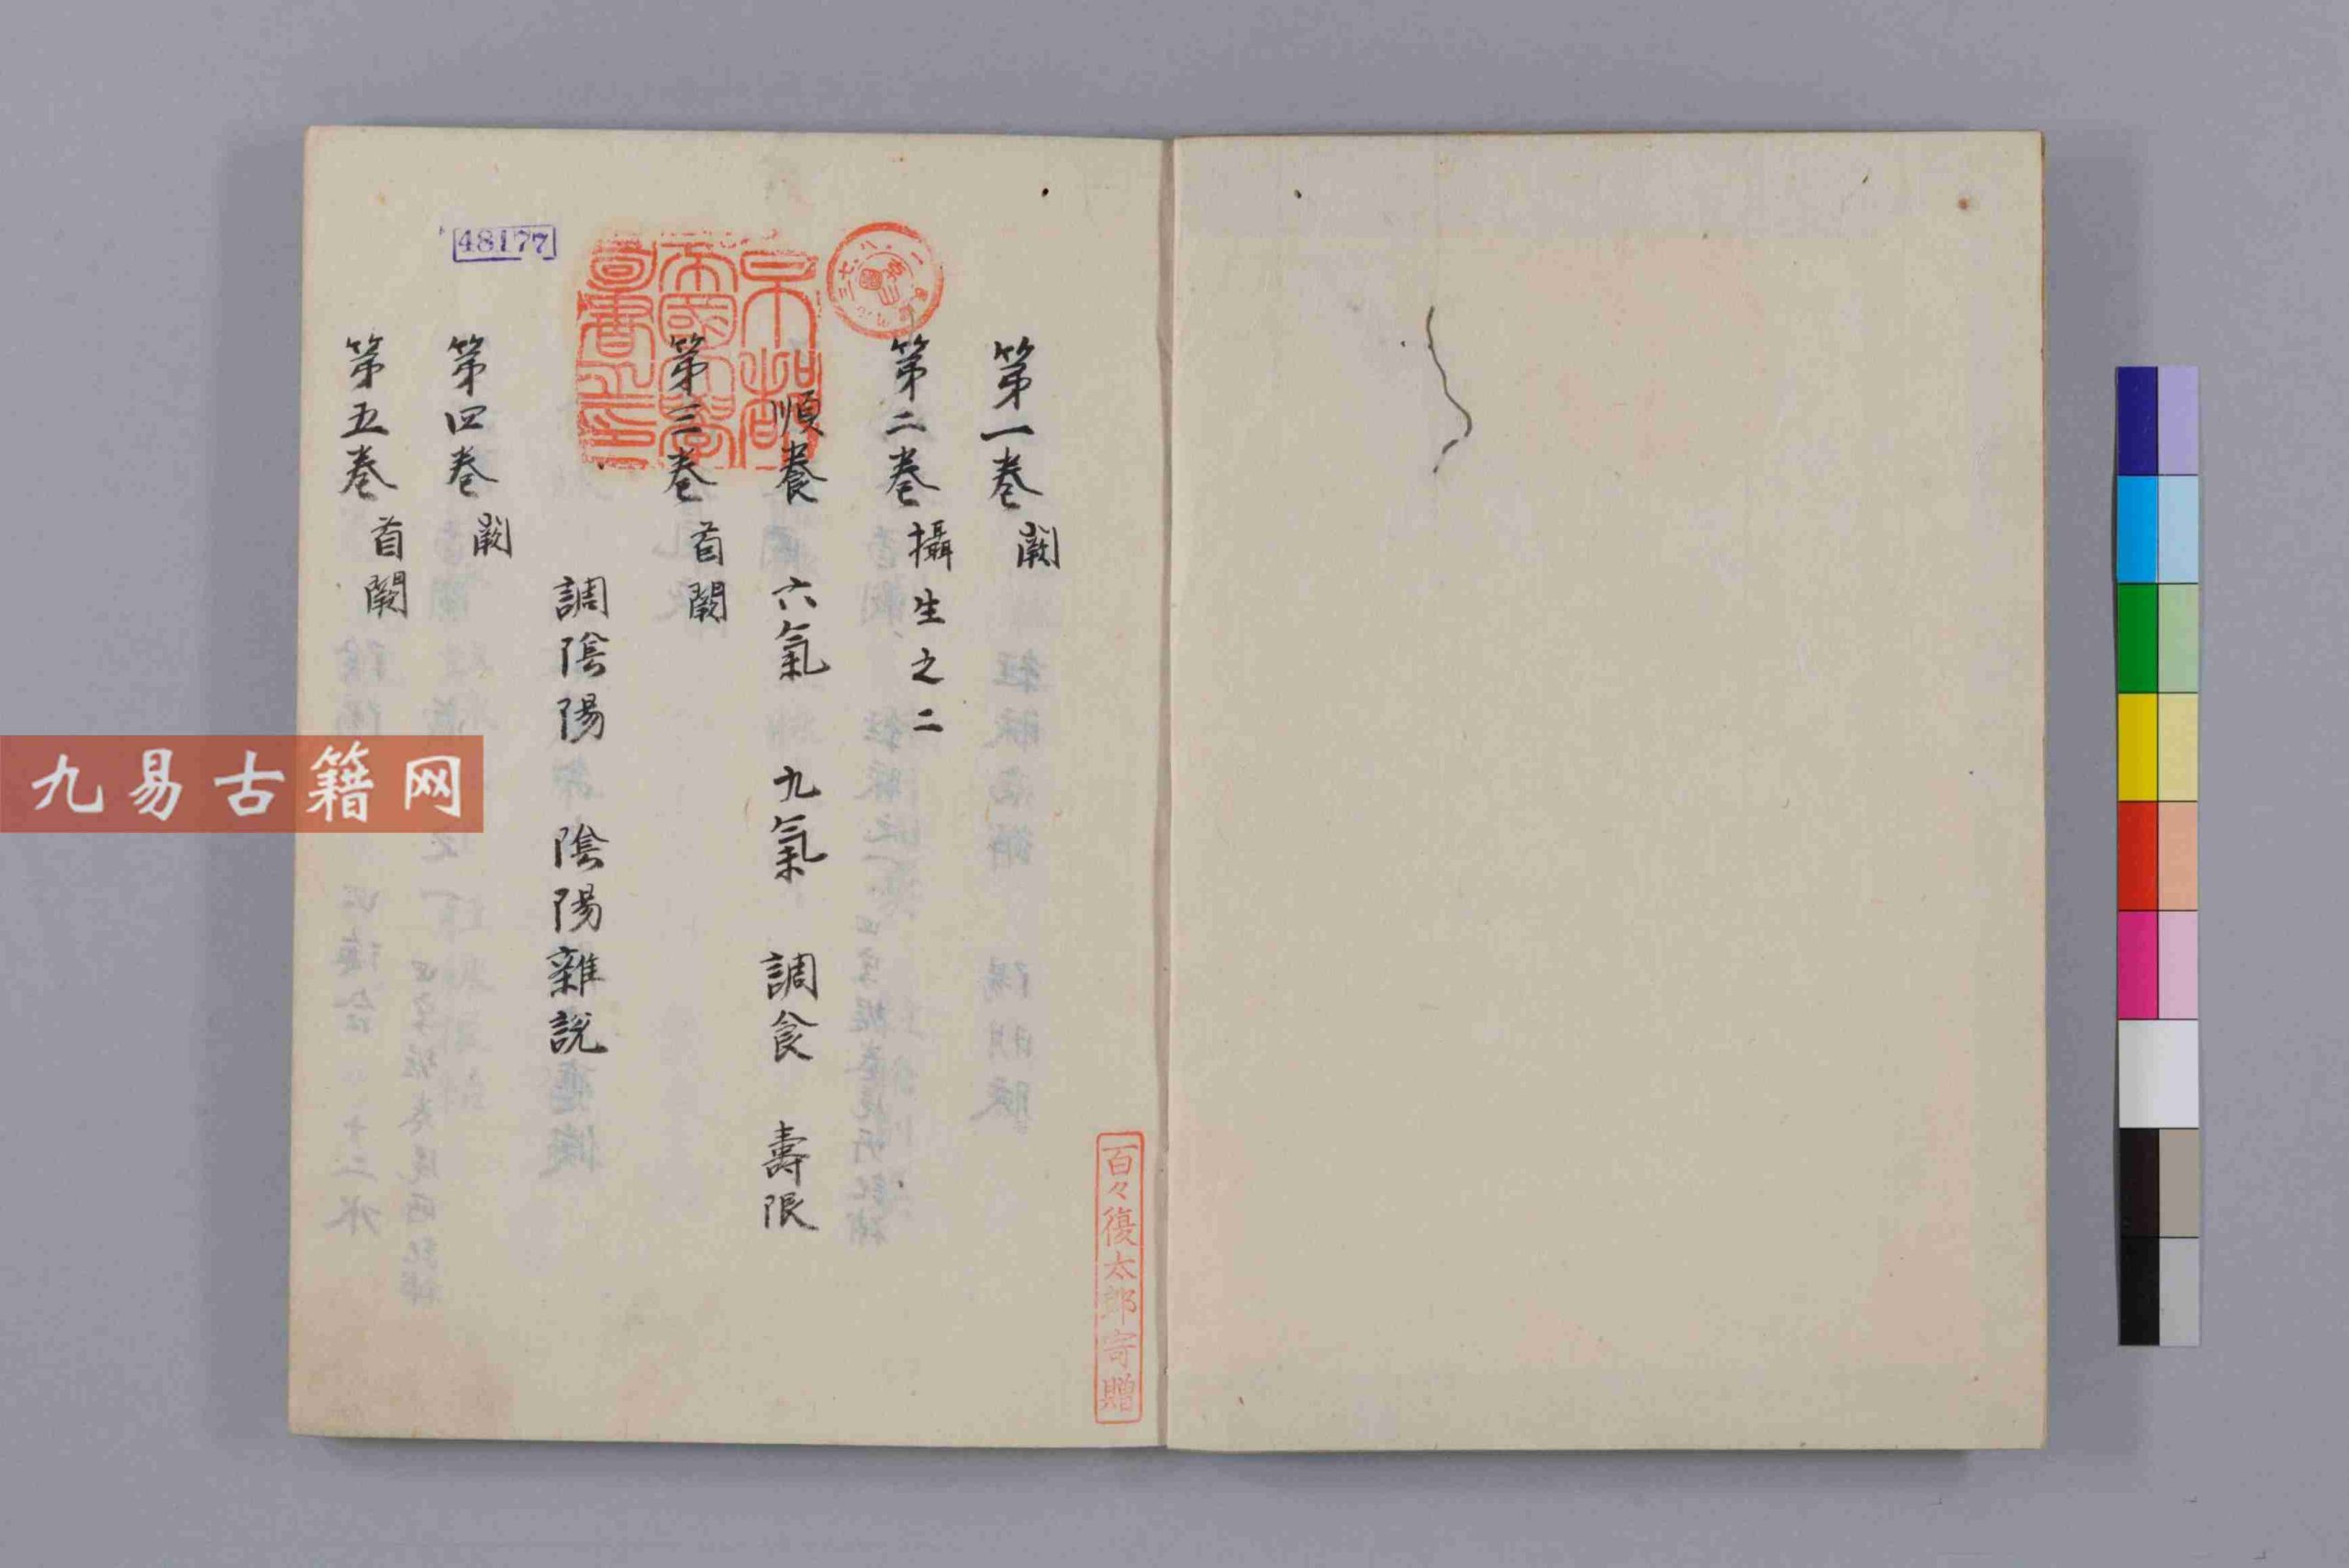 第一巻 闕
第二巻 攝生之二
順養 六氣 九氣 調食 壽限
第三巻 首闕
調陰陽 陰陽雜説
第四巻 闕
第五巻 首闕
48177
京都帝國大學圖書之印
百々復太郎寄贈
九易古籍网